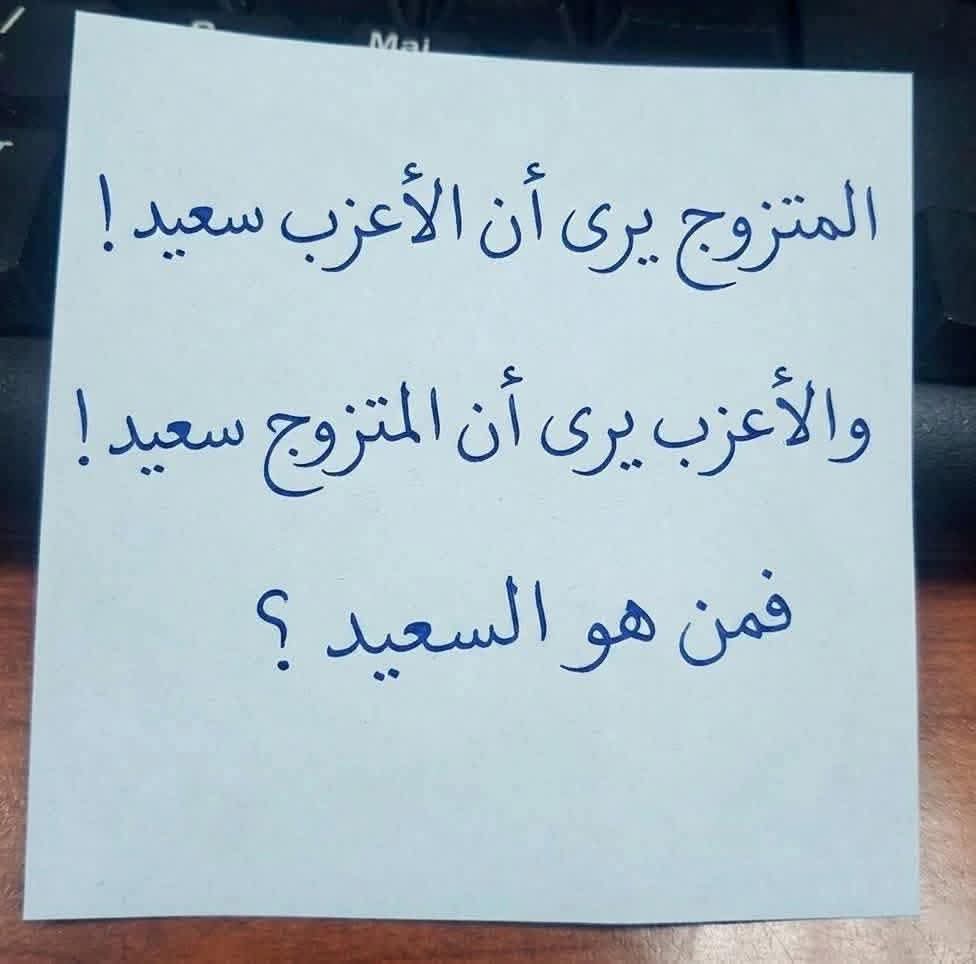 Maj
المتزوج يرى أن الأعزب سعيد !
والأعزب يرى أن المتزوج سعيد !
فمن هو السعيد ؟